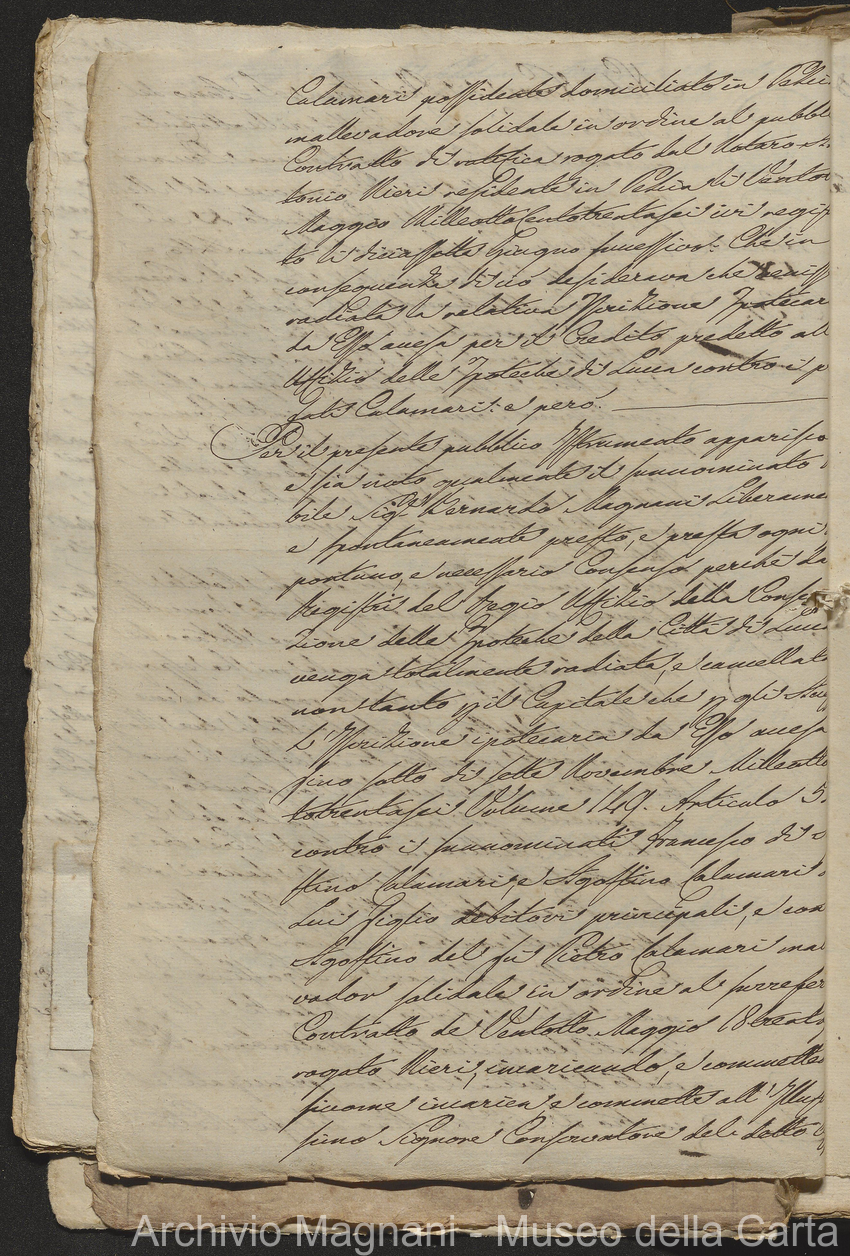 Calamari possidente domiciliato in Pescia
mallevadore solidale in ordine al pubbli
Contratto di ratifica rogato dal Notaro An
tonio Nieri residente in Pescia li Ventot
Maggio Milleottocentotrentasei ivi regis
to li diciassette Giugno successivo: Che in
conseguenza di ciò desiderava che veniss
radiata la relativa Iscrizione Ipotecar
da Esso accesa per il Credito predetto all
Uffizio delle Ipoteche di Lucca contro i p
fati Calamari: e però.
Per il presente pubblico Istrumento apparisca
e sia noto qualmente il sunnominato
bile Sigr. Bernardo Magnani Liberame
e spontaneamente prestò, e presta ogni
portuno, e necessario Consenso perchè da
Registri del Regio Uffizio della Conserva
zione delle Ipoteche della Città di Lucca
venga totalmente radiata, e cancellata
non tanto pil Capitale che p gli
L'Iscrizione ipotecaria da Esso accesa
fino sotto di sette Novembre Milleotto
totrentasei Volume 149. Articolo 5
contro i sunnominati Francesco di
stino Calamari, e Agostino Calamari
Lui figlio debitori principali, e con
Agostino del fu Pietro Calamari mal
vador solidale in ordine al surrefer
Contratto de Ventotto Maggio 18trentas
rogato Nieri, incaricando, e commettendo
sicome incarica, e commette all'Illus
simo Signore Conservatore del detto
Archivio Magnani - Museo della Carta